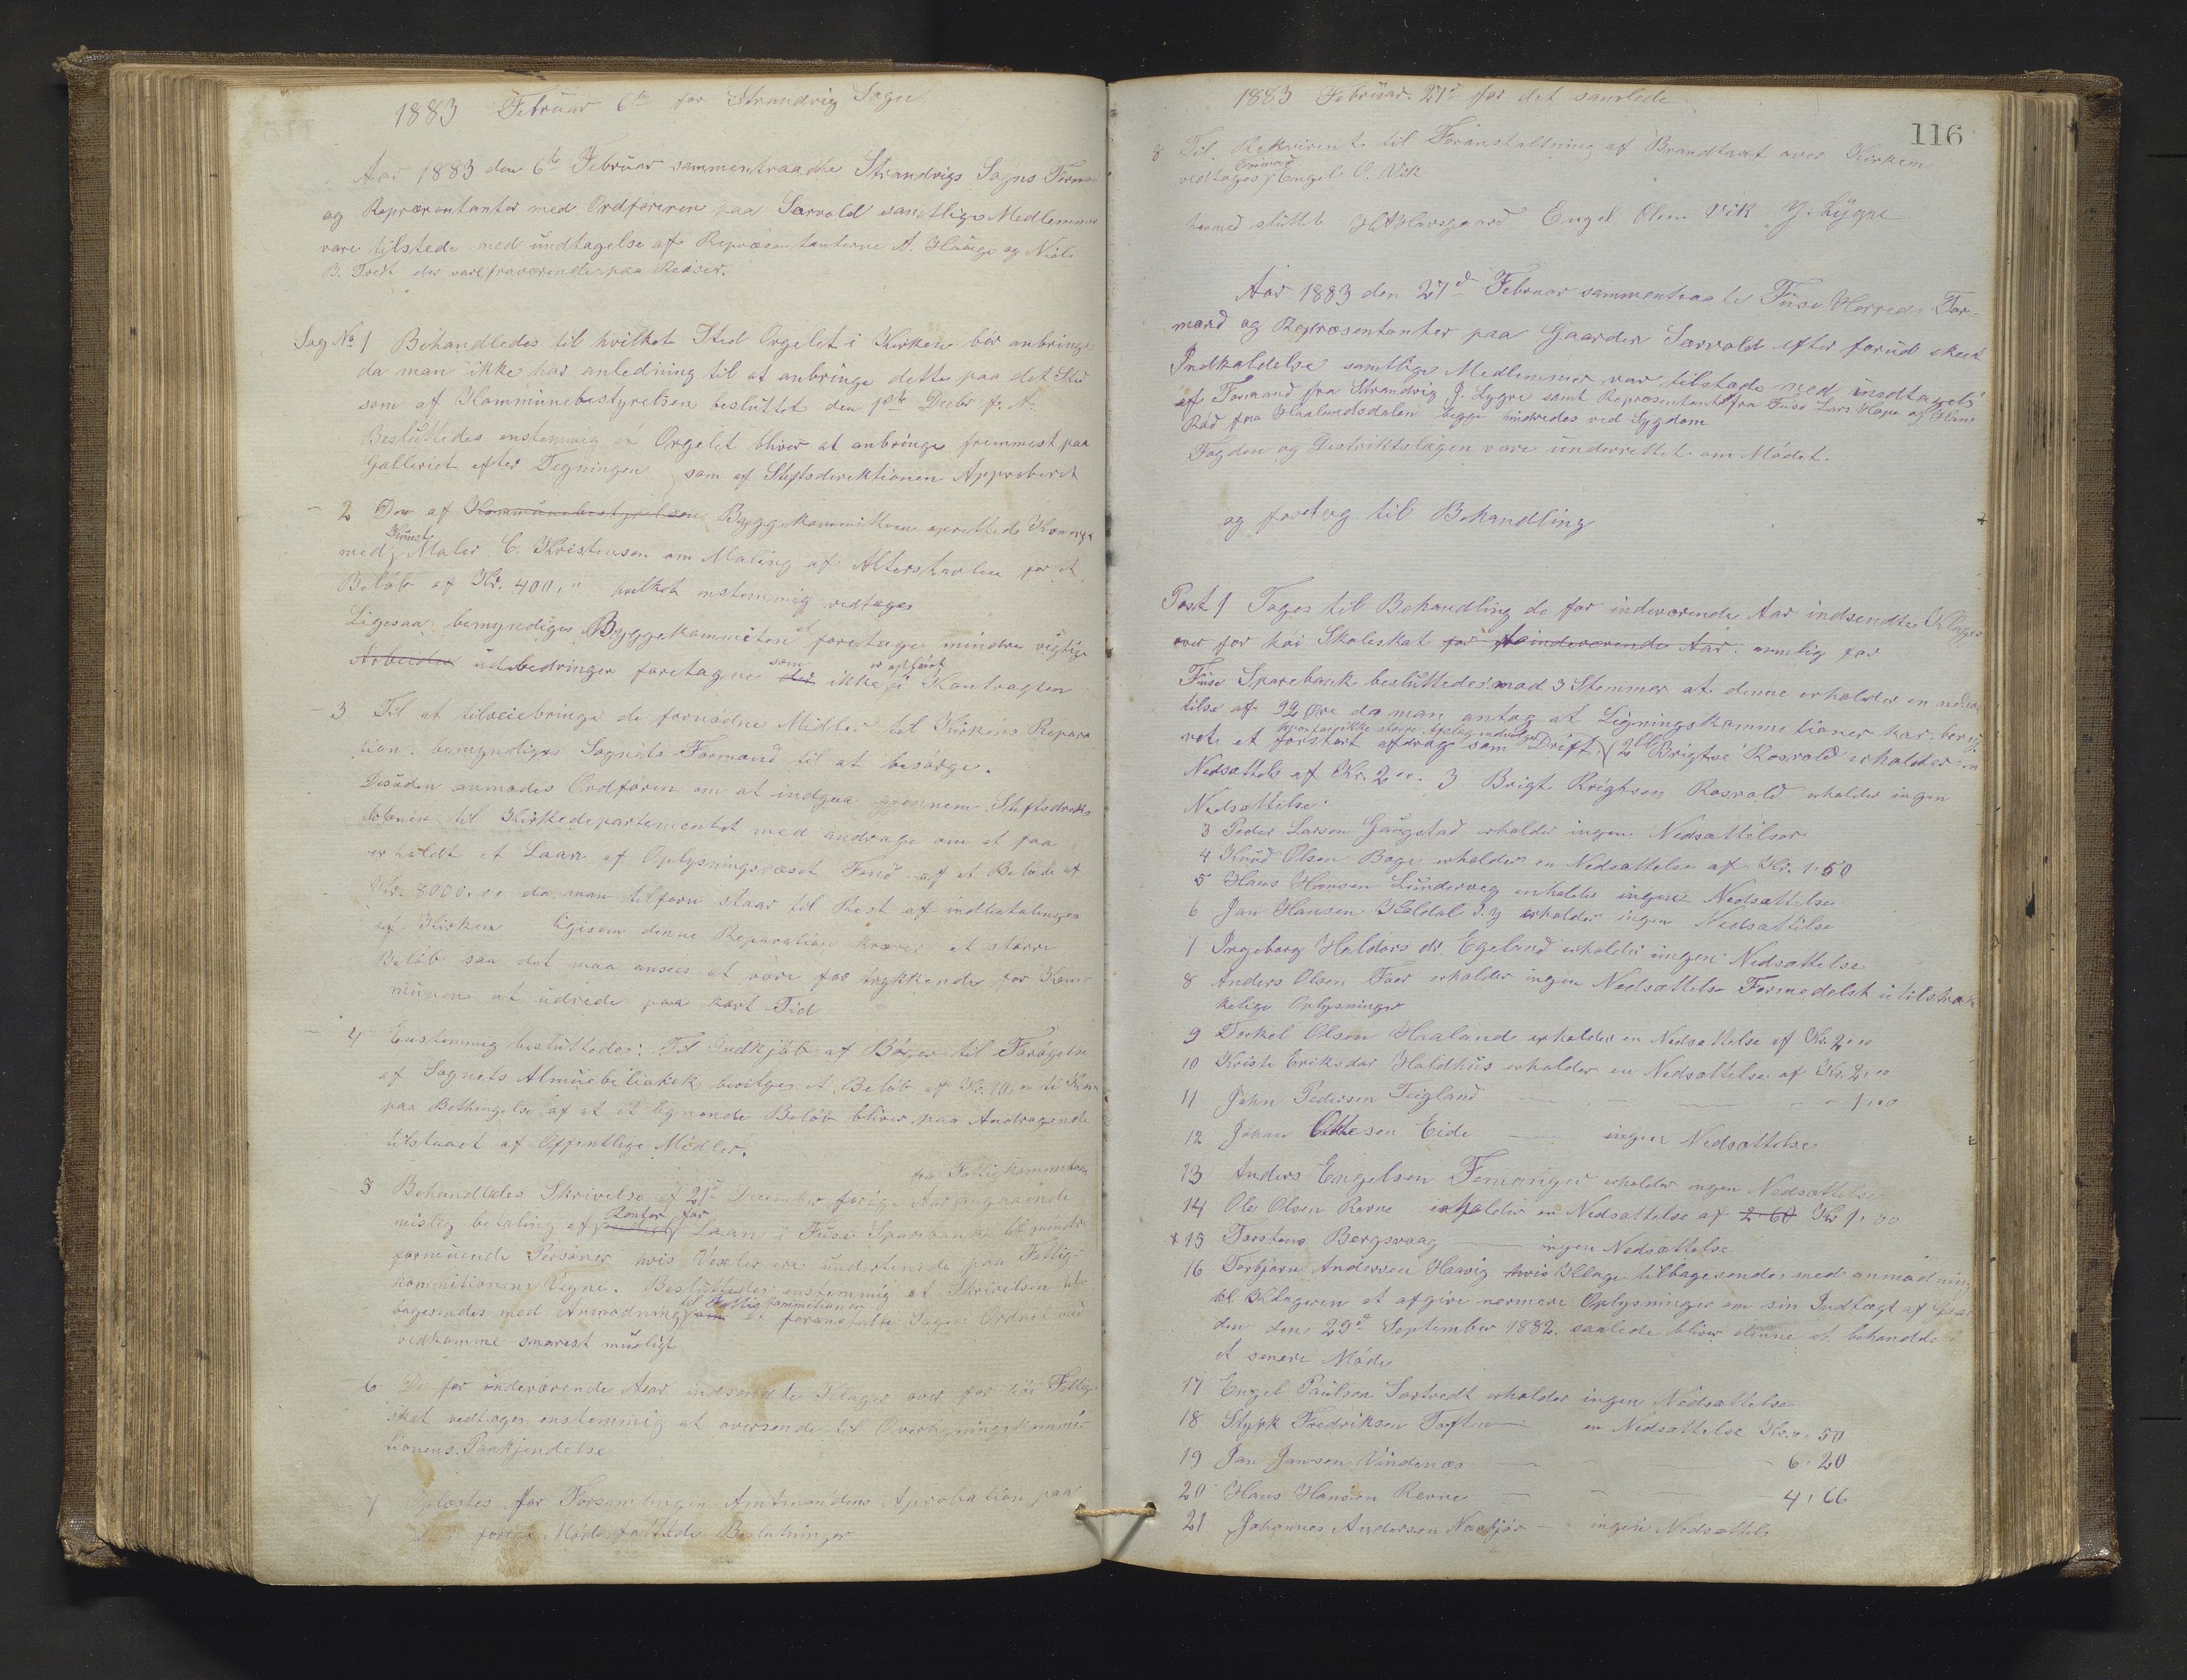 1883 Februar 6te for Strandvig Sogn
Aar 1883 den 6te Februar sammentraadte Strandvigs Sogns Formæ
og Repræsentanter med Ordføreren paa Særvold samtlige Medlemmer
vare tilstede med undtagelse af Repræsentanterne A. Hauge og Nils
B. Tveit der vare fraværende paa Reiser.
Sag No 1 Behandledes til hvilket Sted Orgelet i Kirken bør anbringes
da man ikke har anledning til at anbringe dette paa det Sted
som af Kommunebestyrelsen besluttet den 1ste Decbr f. A.
Besluttedes enstemmig at Orgelet bliver at anbringe fremmest paa
Galleriet efter Tegningen som af Stiftsdirektionen Approberet
- 2 Den af Kommunebestyrelsen Byggekommitteen oprettede Kontrakt
med Kunst Maler C. Kristensen om Maling af Altertavlen for et
Beløb af Kr. 400,,  hvilket enstemmig vedtages
Ligesaa bemyndiges Byggekommiteen at foretage mindre vigtige
Arbeider udbedringer foretagne der som ikke er opført i Kontragten
- 3 Til at tilveiebringe de fornødne Midler til Kirkens Repara
tion bemyndiges Sognets Formænd til at besørge.
Desuden anmodes Ordføren om at indgaa gjennem Stiftsdirek
tionen til Kirkedepartementet med andrage om at faa
erholdt et Laan af Oplysningsvæsets Fond af et Beløb af
Kr. 8000.00 da man tilforn staar til Rest af indbetalingen
af Kirken ligesom denne Reparation kræver et større
Beløb saa det maa ansees at være for trykkende for Kom
munen at udrede paa kort Tid
- 4 Enstemmig besluttedes: Til Indkjøb af Bøger til Forøgelse
af Sognets Almuebibliothek bevilges et Beløb af Kr. 10,00 ti Kroner
paa Bethingelse af at et lignende Beløb bliver paa Andragende
tilstaaet af Offentlige Midler.
5 Behandledes Skrivelse af 21de December forige Aar fra Fattigkommitionen angaaende
mislig betaling af Renter for Laan i Fuse Sparebank til mindre
formuende Personer hvis Vexler ere undertegnede paa Fattig-
kommitionens Vegne. Besluttedes enstemmig at Skrivelsen til
bagesendes med Anmodning til Fattigkommitionen om at foranstalte Sagen Ordnet med
vedkomme snarest muligt
6 De for indeværende Aar indsendte Klager over for høi Fattig
skat vedtages enstemmig at oversende til Overligningskommi-
tionens Paakjendelse
7 Oplæstes for Forsamlingen Amtmandens Aprobation paa
forige Møde fattede Beslutninger
1883 Februar. 27de for det samlede
116
8 Til Rekvirent til Foranstaltning af Brandtaxt over Kirken
vedtages Formand Engel O. Vik
hermed sluttet H Havsgaard Engel Olsen Vik J. Lygre
Aar 1883 den 27de Februar sammentraate Fuse Herreds For-
mænd og Repræsentanter paa Gaarden Særvold efter forud skeet
Indkaldelse samtlige Medlemmer var tilstæde med undtagelse
af Formand fra Strandvig J. Lygre samt Repræsentanter fra Fuse Lars Hope og Hans
Rød fra Haalandsdalen begge hindredes ved Sygdom
Fogden og Distriktslægen vare underrettet om Mødet.
og foretog til Behandling
Post 1 Toges til Behandling de for indeværende Aar indsendte Klager
over for høi Skoleskat for indeværende Aar. nemlig for
Fuse Sparebank besluttedes mod 3 Stemmer at denne erholder en nedsæt
telse af 92 Øre da man antog at Ligningskommitioner har bereg
net et forstort afdrag som Drift hvorfor ikke større Afslag indvilges 2 Brigt Rosvold erholder en
Nedsættels af Kr. 2.00. 3 Brigt Brightsen Rosvold erholder ingen
Nedsættelse.
3 Peder Larsen Gaugstad erholder ingen Nedsættelser
4 Knud Olsen Bogø erholder en Nedsættelse af Kr. 1.50
5 Hans Hansen Lundervig erholder ingen Nedsættelse
6 Jan Hansen Kaldal erholder ingen Nedsættelse
7 Ingeborg Haldorsdr. Egeland erholder ingen Nedsættelse
8 Anders Olsen Foer erholder ingen Nedsættelse Formedelst utilstræk
kelige Oplysninger
9 Torkel Olsen Haaland erholder en Nedsættelse af Kr. 2.00
10 Kriste Eriksdar Holdhus erholder en Nedsættelse af Kr. 2,00
11 John Pedersen Teigland — - — - 1,00
12 Johan Ottesen Eide — ingen Nedsættelse
13 Anders Engelsen Femanger erholder ingen Nedsættelse
14 Ole Olsen Revne erholder en Nedsættelse af 2.60 Kr 1.00
x 15 Torstens Bergsvaag — ingen Nedsættelse
16 Torbjørn Andersen Haavig hvis Klage tilbagesendes med anmodning
til Klageren at afgive nærmere Oplysninger om sin Indtægt af Gaar
den den 29de September 1882. saaledes bliver denne at behandle i
et senere Møde
17 Engel Paulsen Sørtvedt erholder ingen Nedsættelse
18 Stykk Fredriksen Toften — en Nedsættelse Kr. ". 50
19 Jan Jansen Vindenæs — - — 6.20
20 Hans Hansen Revne — - — 4,66
21 Johannes Andersen - ingen Nedsættels